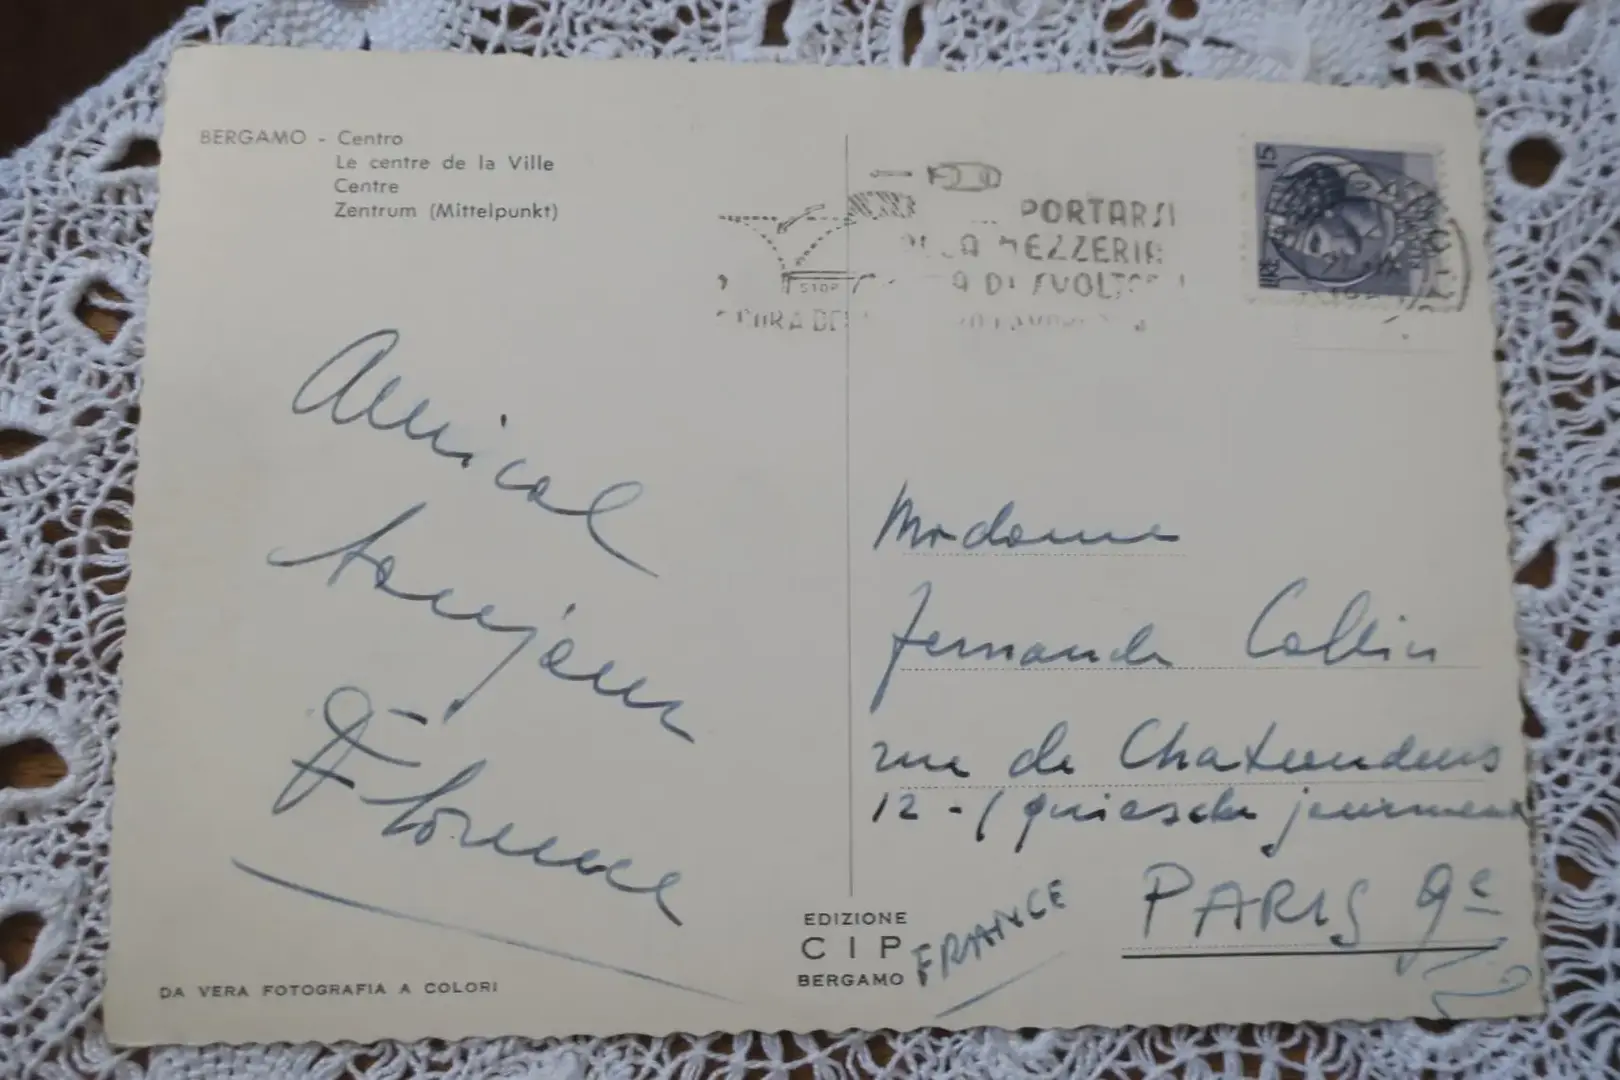 BERGAMO - Centro
Le centre de la Ville
Centre
Zentrum (Mittelpunkt)
PORTARSI
MEZZERIA
DI SVOLT
STOP
15
LIRE
Amical
toujours
Madame
Fernande Collin
rue de Chateaudun
12 -
PARIS 9e
FRANCE
EDIZIONE
CIP
BERGAMO
DA VERA FOTOGRAFIA A COLORI